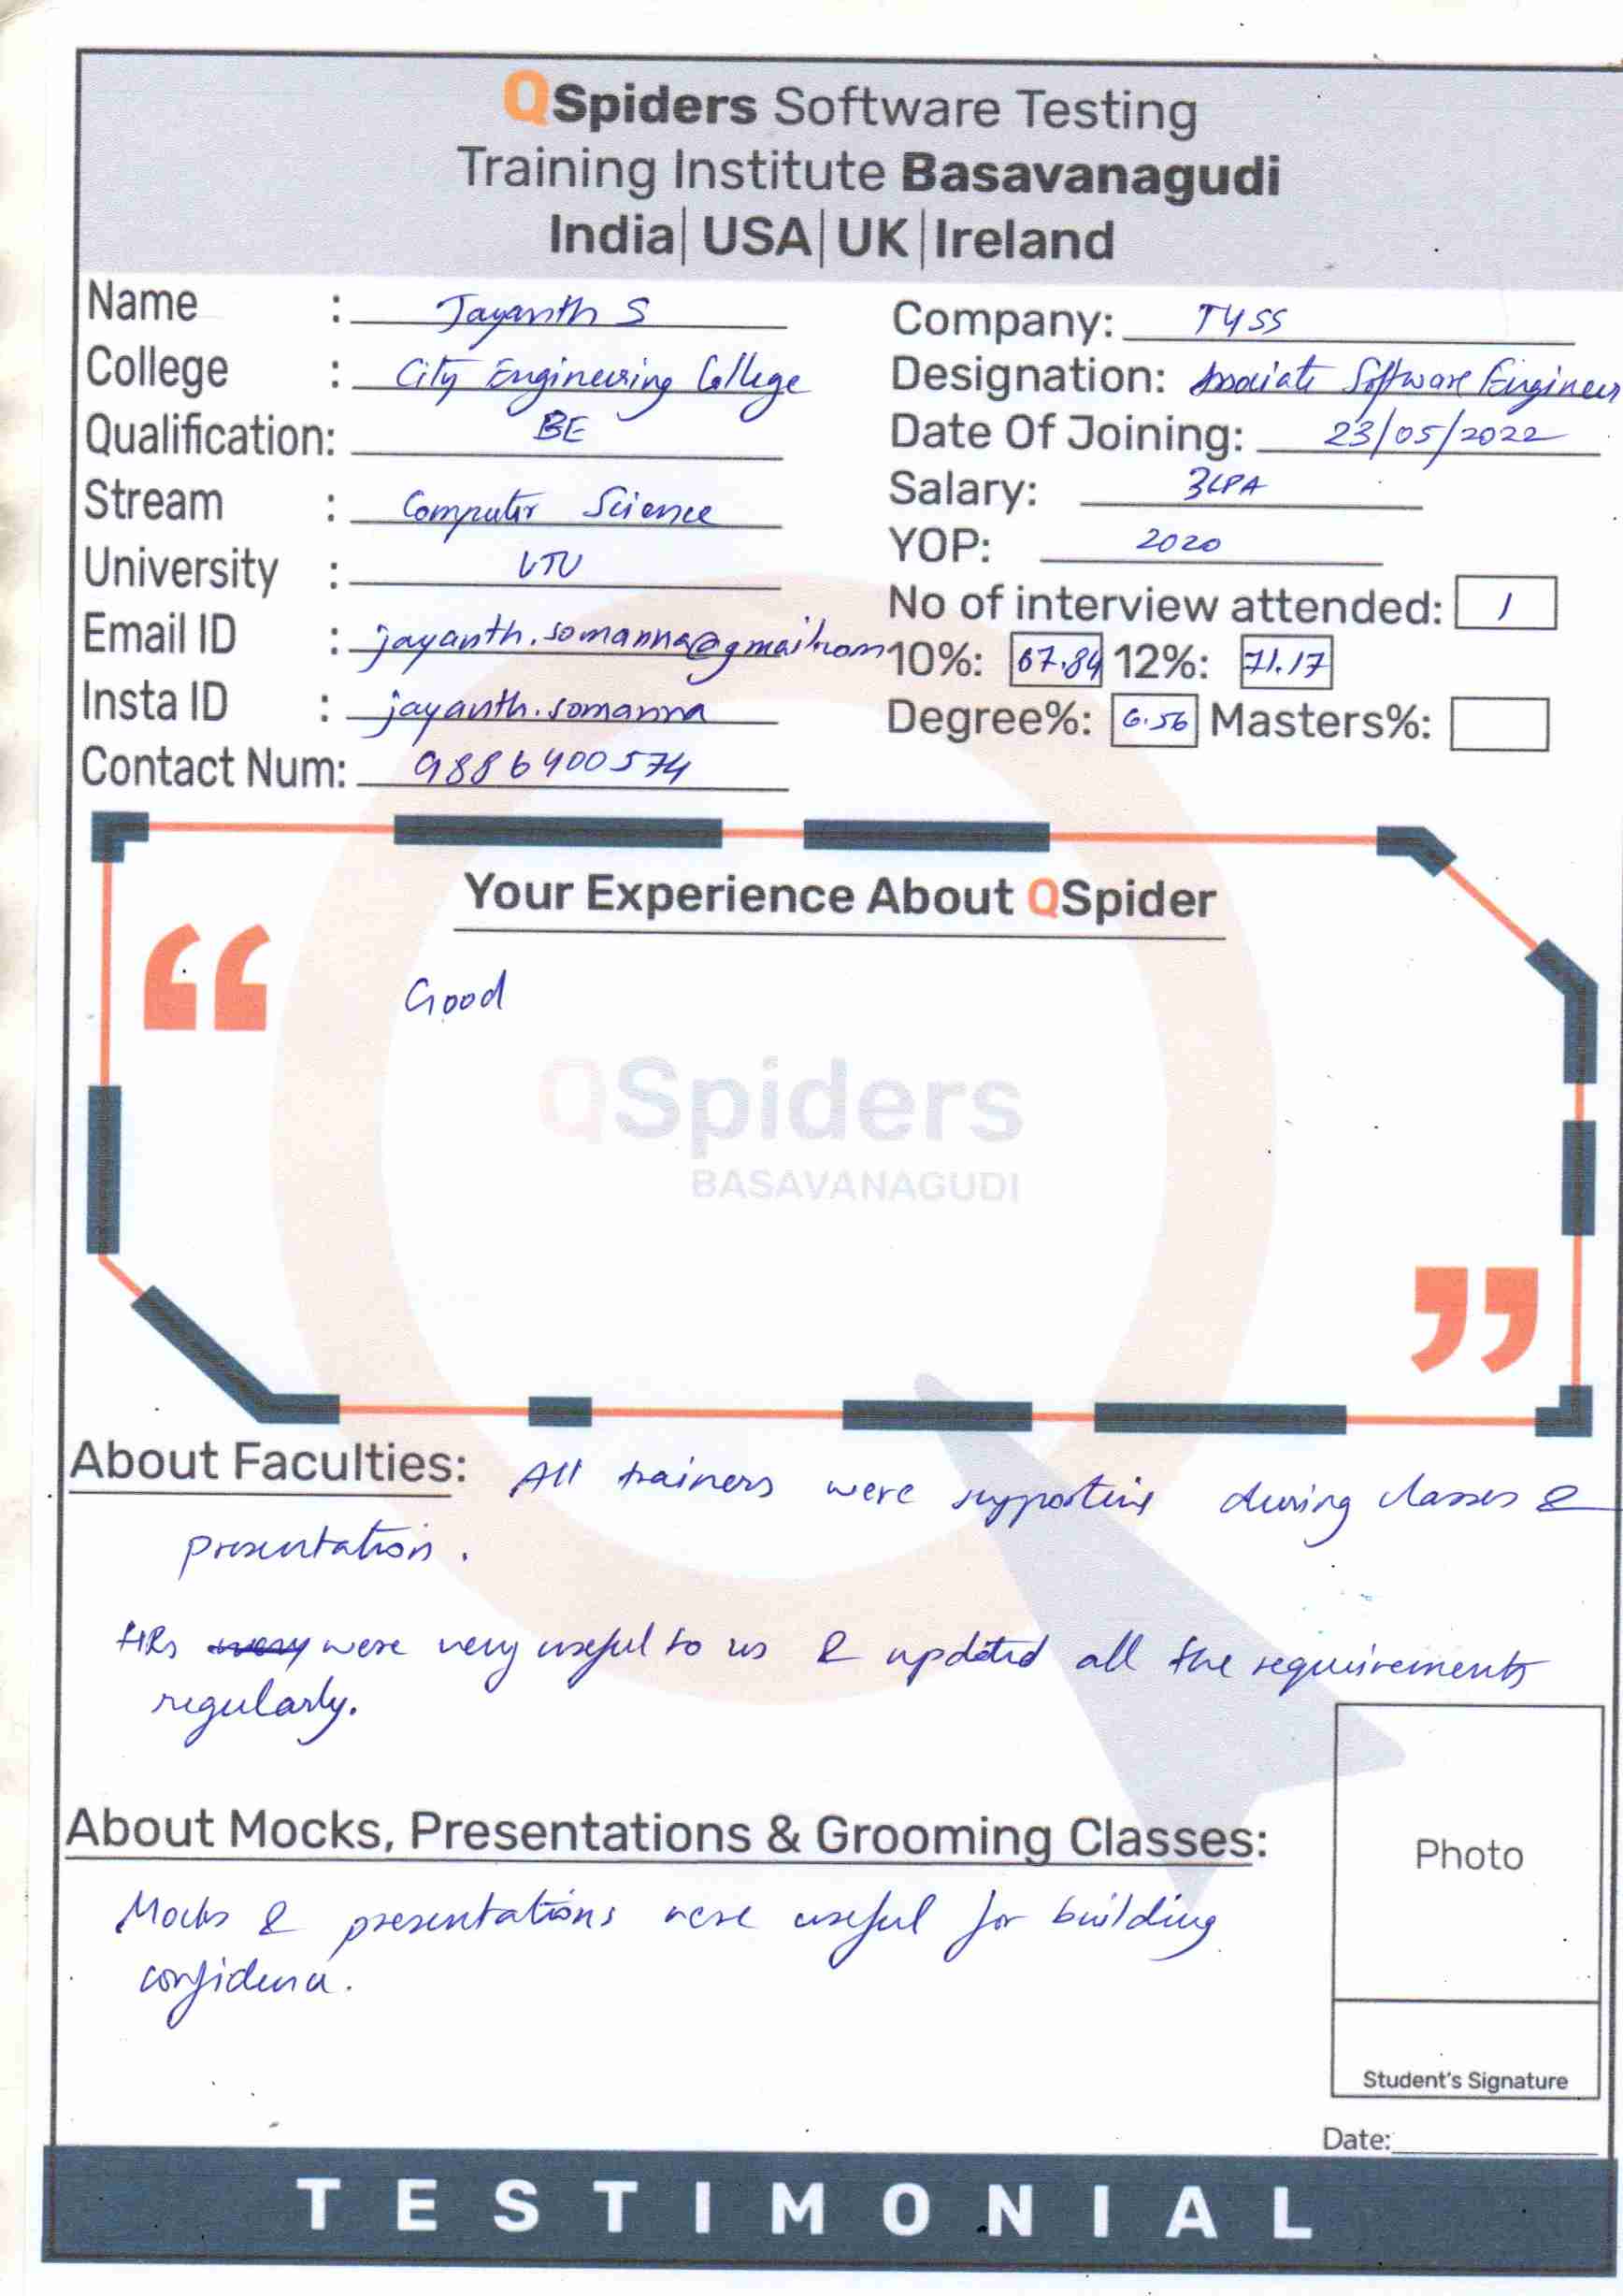 QSpiders Software Testing
Training Institute Basavanagudi
India| USA| UK| Ireland
Name : Jayanth S
College : City Engineering College
Qualification: BE
Stream : Computer Science
University : VTU
Email ID : jayanth.somanna@gmail.com
Insta ID : jayanth.somanna
Contact Num: 9886400574
Company: TYSS
Designation: Associate Software Engineer
Date Of Joining: 23/05/2022
Salary: 3LPA
YOP: 2020
No of interview attended: 1
10%: 67.84 12%: 71.17
Degree%: 6.56 Masters%:
Your Experience About QSpider
“
Good
QSpiders
BASAVANAGUDI
”
About Faculties: All trainers were supporting during classes &
presentation.
HRs were very useful to us & updated all the requirements
regularly.
About Mocks, Presentations & Grooming Classes:
Mocks & presentations were useful for building
confidence.
Photo
Student's Signature
Date:
TESTIMONIAL